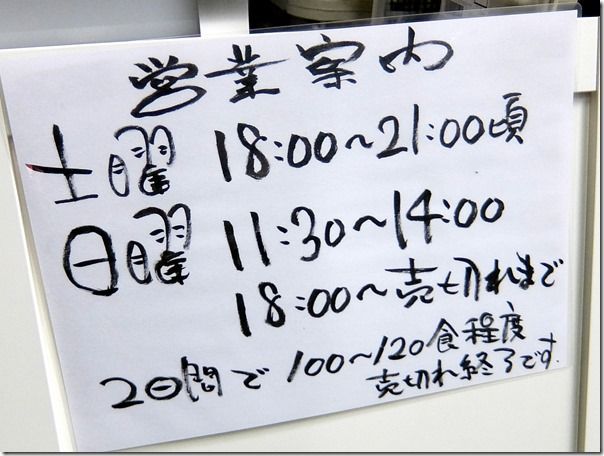 営業案内
土曜 18:00〜21:00頃
日曜 11:30〜14:00
18:00〜売切れまで
2日間で 100〜120食程度
売切れ終了です.